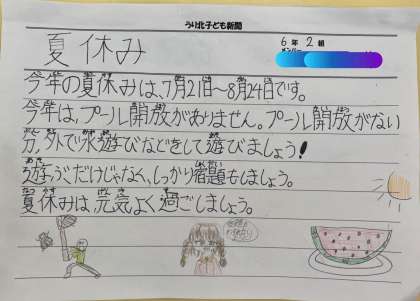 うり北子ども新聞
6年2組
メンバー
夏休み
今年の夏休みは、7月21日〜8月24日です。
今年は、プール開放がありません。プール開放がない
分、外で水遊びなどをして遊びましょう!
遊ぶだけじゃなく、しっかり宿題もしましょう。
夏休みは、元気よく過ごしましょう。